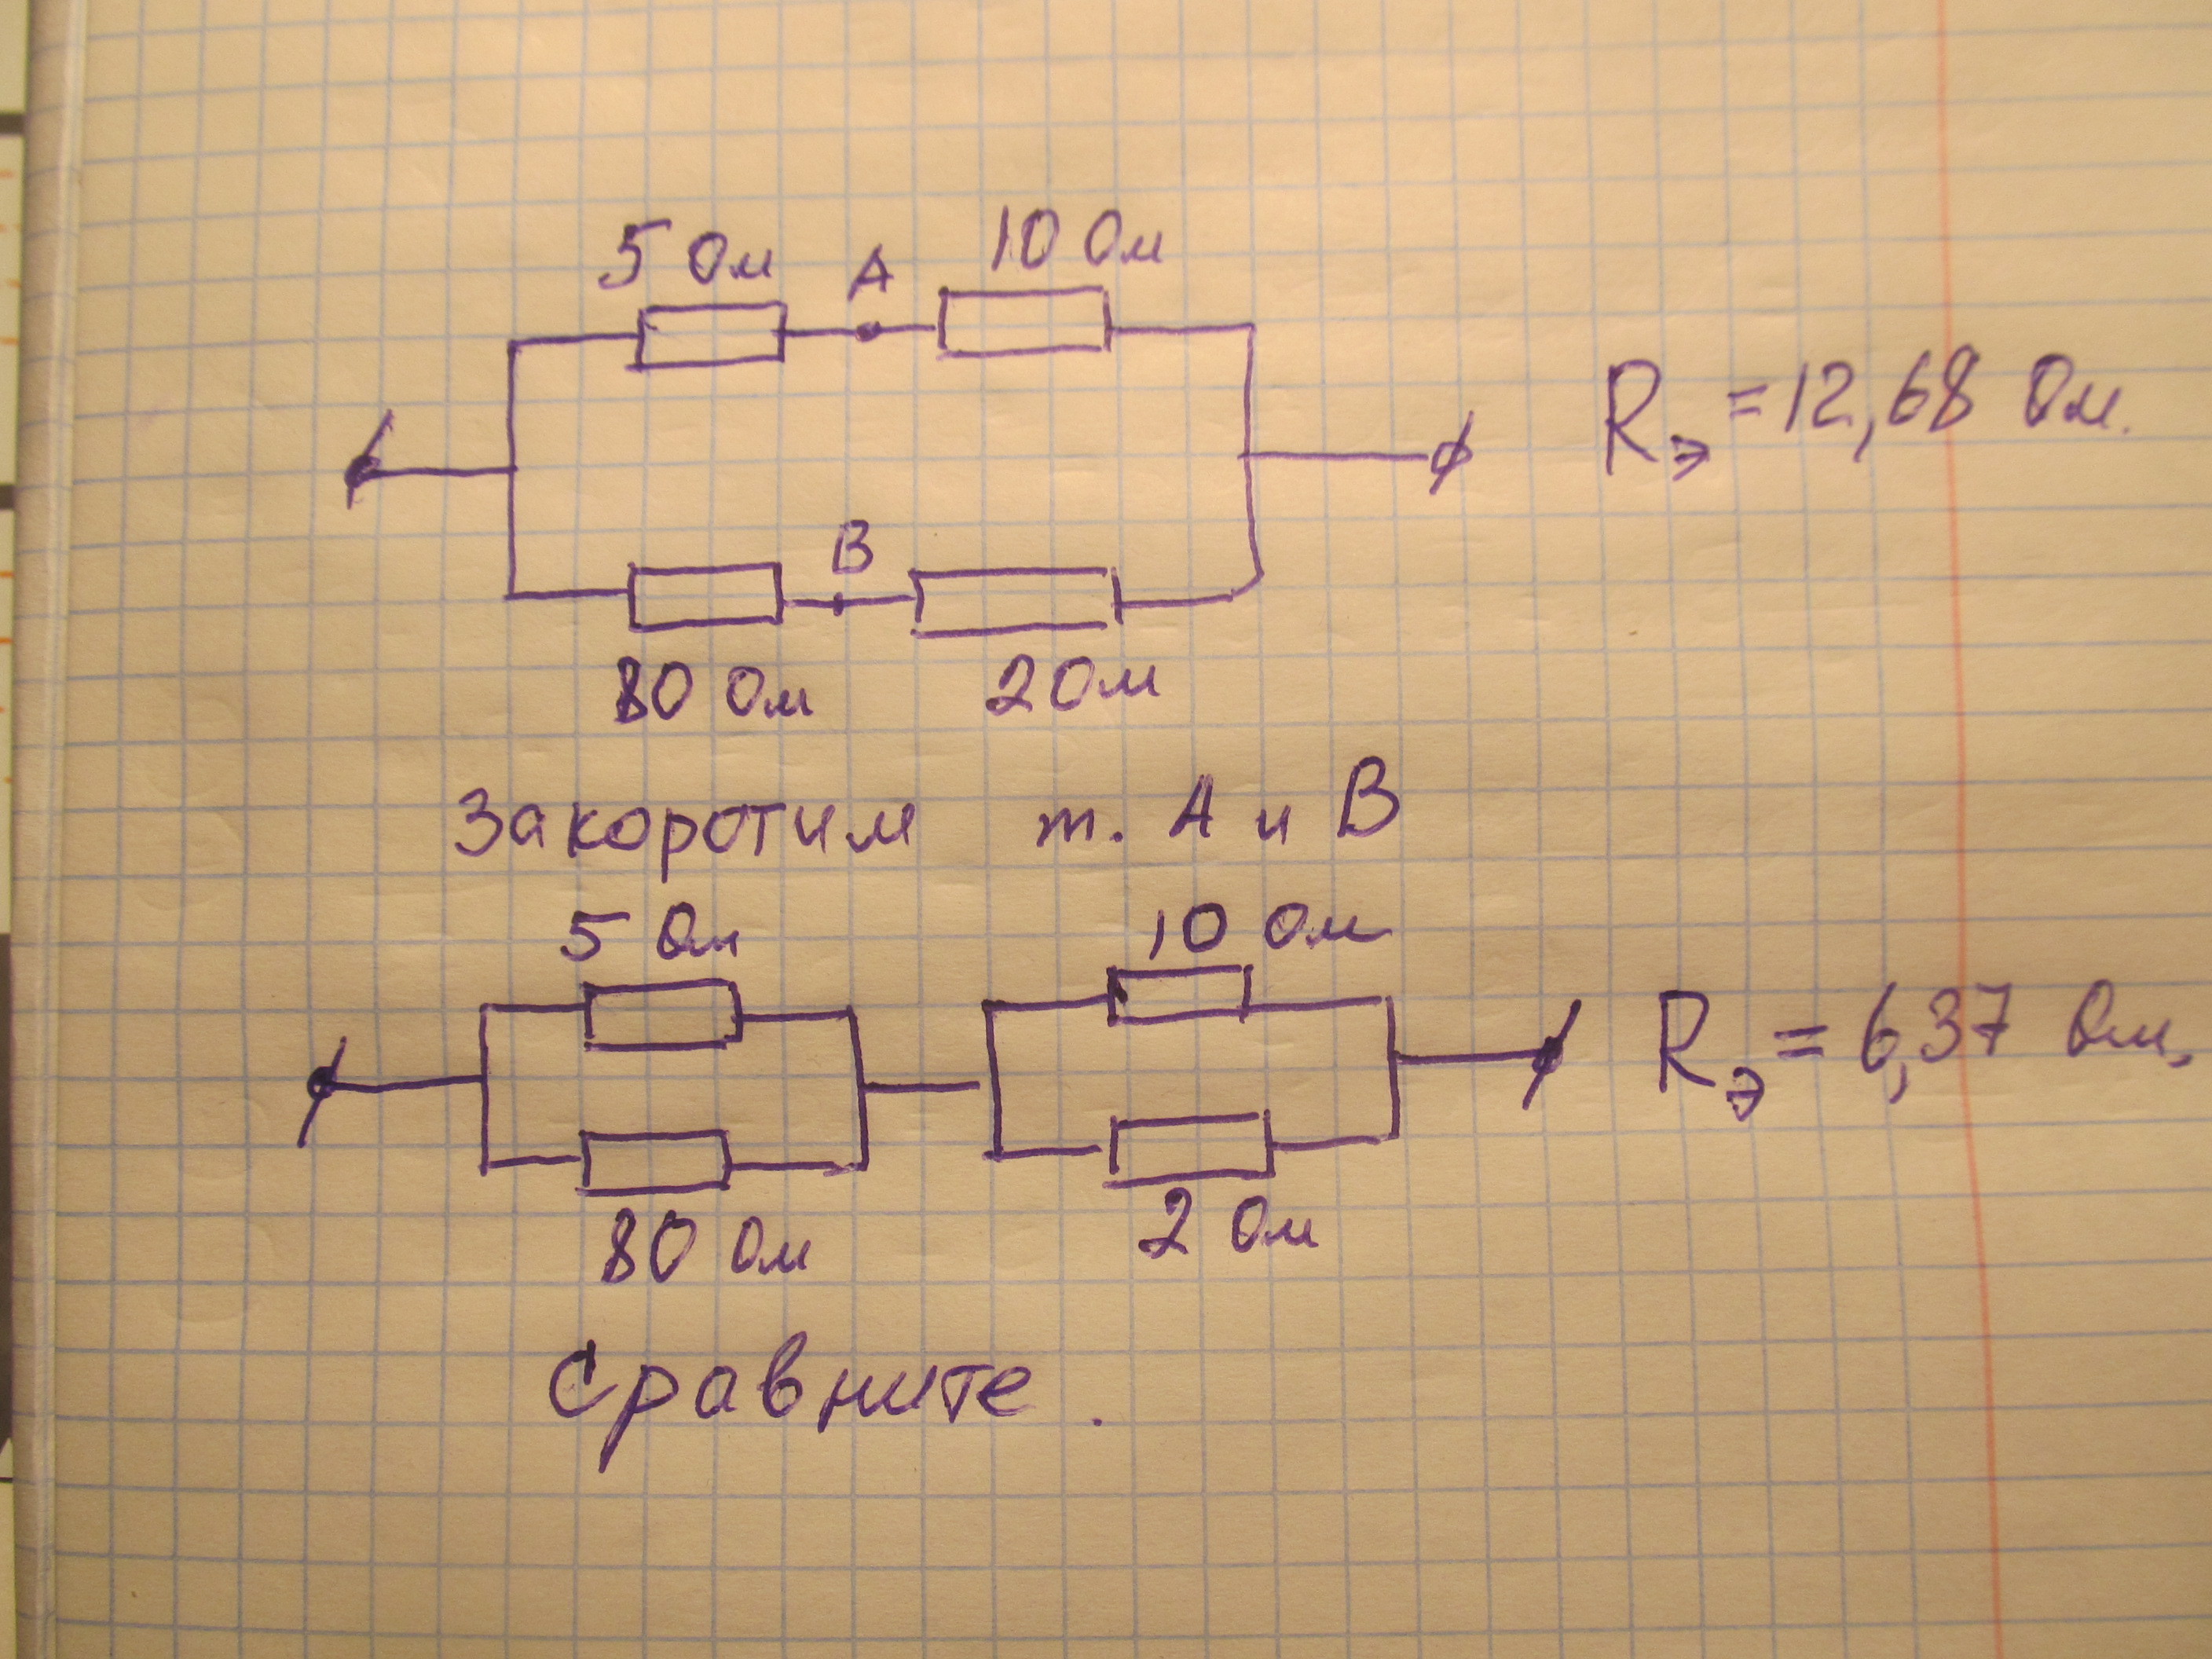 5 Ом А 10 Ом
Rэ = 12,68 Ом.
В
80 Ом 2 Ом
Закоротим т. А и В
5 Ом 10 Ом
Rэ = 6,37 Ом.
80 Ом 2 Ом
Сравните.